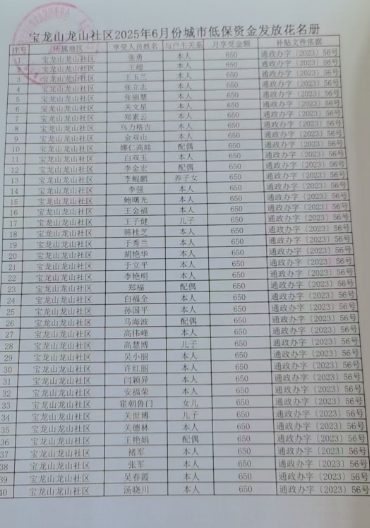 宝龙山龙山社区2025年6月份城市低保资金发放花名册
序号 所属地区 享受人员姓名 与户主关系 月享受金额 补贴文件依据
1 宝龙山龙山社区 本人 650 通政办字〔2023〕56号
2 宝龙山龙山社区 本人 650 通政办字〔2023〕56号
3 宝龙山龙山社区 本人 650 通政办字〔2023〕56号
4 宝龙山龙山社区 本人 650 通政办字〔2023〕56号
5 宝龙山龙山社区 本人 650 通政办字〔2023〕56号
6 宝龙山龙山社区 本人 650 通政办字〔2023〕56号
7 宝龙山龙山社区 本人 650 通政办字〔2023〕56号
8 宝龙山龙山社区 本人 650 通政办字〔2023〕56号
9 宝龙山龙山社区 本人 650 通政办字〔2023〕56号
10 宝龙山龙山社区 配偶 650 通政办字〔2023〕56号
11 宝龙山龙山社区 白双玉 本人 650 通政办字〔2023〕56号
12 宝龙山龙山社区 李金宏 配偶 650 通政办字〔2023〕56号
13 宝龙山龙山社区 养子女 650 通政办字〔2023〕56号
14 宝龙山龙山社区 李强 本人 650 通政办字〔2023〕56号
15 宝龙山龙山社区 鲍曙光 本人 650 通政办字〔2023〕56号
16 宝龙山龙山社区 王金福 本人 650 通政办字〔2023〕56号
17 宝龙山龙山社区 王子健 儿子 650 通政办字〔2023〕56号
18 宝龙山龙山社区 韩桂芝 本人 650 通政办字〔2023〕56号
19 宝龙山龙山社区 于秀兰 本人 650 通政办字〔2023〕56号
20 宝龙山龙山社区 胡艳华 本人 650 通政办字〔2023〕56号
21 宝龙山龙山社区 于立平 本人 650 通政办字〔2023〕56号
22 宝龙山龙山社区 李艳明 本人 650 通政办字〔2023〕56号
23 宝龙山龙山社区 郑福 配偶 650 通政办字〔2023〕56号
24 宝龙山龙山社区 白福全 本人 650 通政办字〔2023〕56号
25 宝龙山龙山社区 孙国平 本人 650 通政办字〔2023〕56号
26 宝龙山龙山社区 马海波 配偶 650 通政办字〔2023〕56号
27 宝龙山龙山社区 高伟峰 本人 650 通政办字〔2023〕56号
28 宝龙山龙山社区 高慧博 儿子 650 通政办字〔2023〕56号
29 宝龙山龙山社区 吴小丽 本人 650 通政办字〔2023〕56号
30 宝龙山龙山社区 许红丽 本人 650 通政办字〔2023〕56号
31 宝龙山龙山社区 闫颖异 本人 650 通政办字〔2023〕56号
32 宝龙山龙山社区 安福荣 本人 650 通政办字〔2023〕56号
33 宝龙山龙山社区 女儿 650 通政办字〔2023〕56号
34 宝龙山龙山社区 关世博 儿子 650 通政办字〔2023〕56号
35 宝龙山龙山社区 关德林 本人 650 通政办字〔2023〕56号
36 宝龙山龙山社区 王艳娟 配偶 650 通政办字〔2023〕56号
37 宝龙山龙山社区 褚军 本人 650 通政办字〔2023〕56号
38 宝龙山龙山社区 张军 本人 650 通政办字〔2023〕56号
39 宝龙山龙山社区 吴春霞 本人 650 通政办字〔2023〕56号
40 宝龙山龙山社区 汤晓川 本人 650 通政办字〔2023〕56号